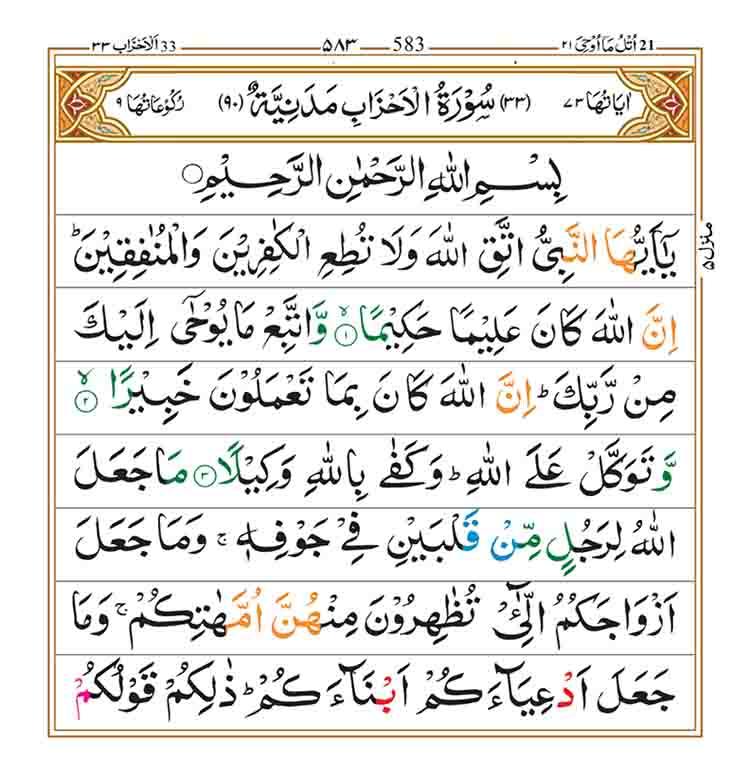 اُتْلُ مَاۤ اُوْحِیَ ۲۱ 21 583 ۵۸۳ 33 اَلْاَحْزَاب ۳۳
اٰیَاتُهَا ۷۳ (۳۳) سُوْرَةُ الْاَحْزَابِ مَدَنِیَّةٌ (۹۰) رُكُوْعَاتُهَا ۹
بِسْمِ اللّٰهِ الرَّحْمٰنِ الرَّحِیْمِ۝
یٰۤاَیُّهَا النَّبِیُّ اتَّقِ اللّٰهَ وَلَا تُطِعِ الْكٰفِرِیْنَ وَالْمُنٰفِقِیْنَ ؕ
اِنَّ اللّٰهَ كَانَ عَلِیْمًا حَكِیْمًا ۙ۝۱ وَّاتَّبِعْ مَا یُوْحٰۤی اِلَیْكَ
مِنْ رَّبِّكَ ؕ اِنَّ اللّٰهَ كَانَ بِمَا تَعْمَلُوْنَ خَبِیْرًا ۙ۝۲
وَّ تَوَكَّلْ عَلَی اللّٰهِ ؕ وَكَفٰی بِاللّٰهِ وَكِیْلًا ۝۳ مَا جَعَلَ
اللّٰهُ لِرَجُلٍ مِّنْ قَلْبَیْنِ فِیْ جَوْفِهٖ ۚ وَمَا جَعَلَ
اَزْوَاجَكُمُ الّٰٓـِٔیْ تُظٰهِرُوْنَ مِنْهُنَّ اُمَّهٰتِكُمْ ۚ وَمَا
جَعَلَ اَدْعِیَآءَكُمْ اَبْنَآءَكُمْ ؕ ذٰلِكُمْ قَوْلُكُمْ
منزل ۵